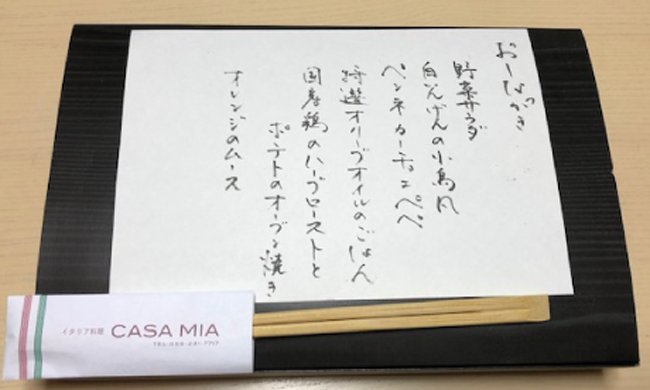 おしながき
野菜サラダ
白いんげんの小鳥風
ペンネ カーチョエペペ
特選オリーブオイルのごはん
国産鶏のハーブローストと
ポテトのオーブン焼き
オレンジのムース
イタリア料理 CASA MIA